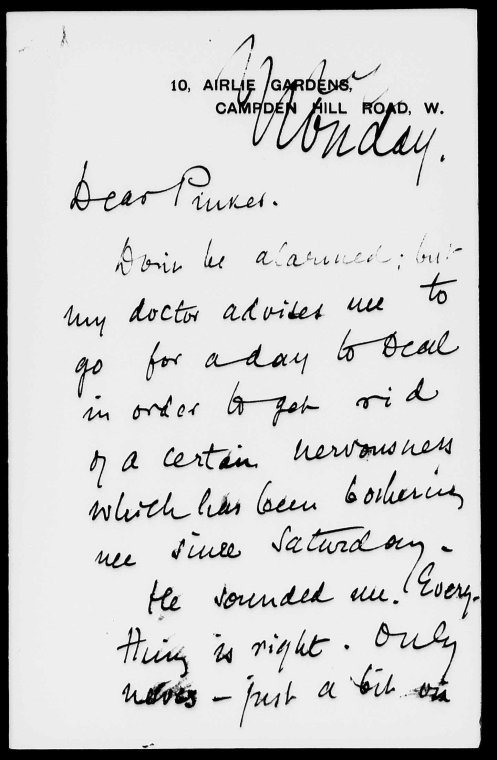 10, AIRLIE GARDENS,
CAMPDEN HILL ROAD, W.
Monday.
Dear Pinker.
Don't be alarmed; but
my doctor advises me to
go for a day to Deal
in order to get rid
of a certain nervousness
which has been bothering
me since Saturday.
He sounded me. Every-
thing is right. Only
nerves – just a bit